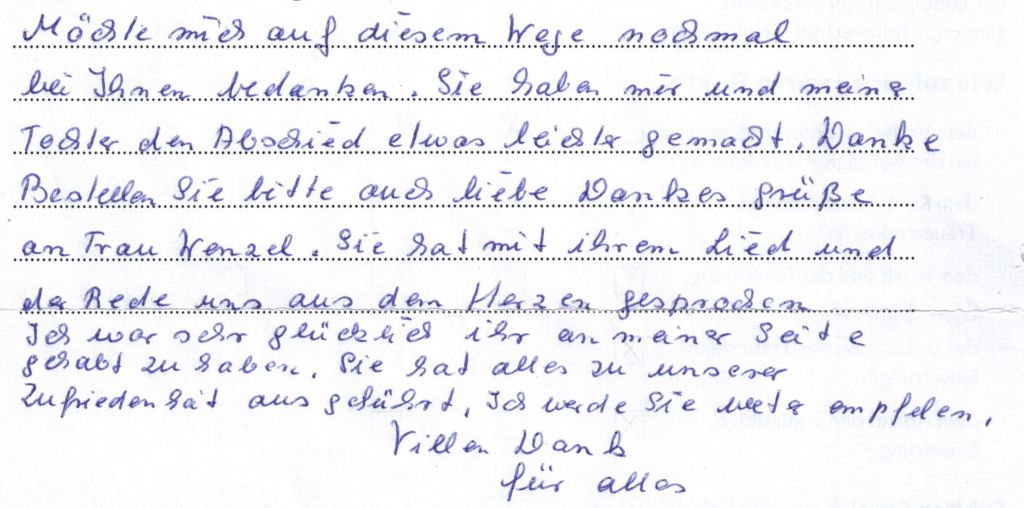 Möchte mich auf diesem Wege nochmal
bei Ihnen bedanken. Sie haben mir und meine
Tochter den Abschied etwas leichter gemacht. Danke
Bestellen Sie bitte auch liebe Dankes grüße
an Frau Wenzel. Sie hat mit ihrem Lied und
der Rede uns aus dem Herzen gesprochen
Ich war sehr glücklich ihr an meiner Seite
gehabt zu haben. Sie hat alles zu unserer
Zufriedenhät aus geführt. Ich werde Sie weter empfelen.
Villen Dank
für alles